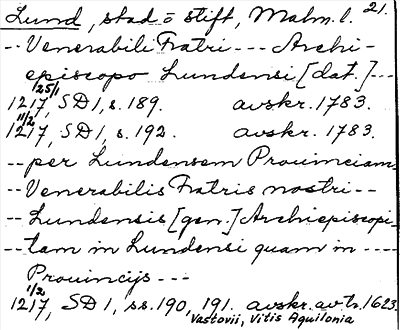 Lund, stad o stift, Malm. l. 21.
-- Venerabili Fratri --- Archi-
episcopo Lundensi [dat.] ---
25/1
1217, SD 1, s. 189. avskr. 1783.
11/2
1217, SD 1, s. 192. avskr. 1783.
-- per Lundensem Prouinciam
-- Venerabilis Fratris nostri --
-- Lundensis [gen.] Archiepiscopi
-- tam in Lundensi quam in ----
Prouincijs ---
1/2
1217, SD 1, ss. 190, 191. avskr. av tr. 1623
Vastovii, Vitis Aquilonia